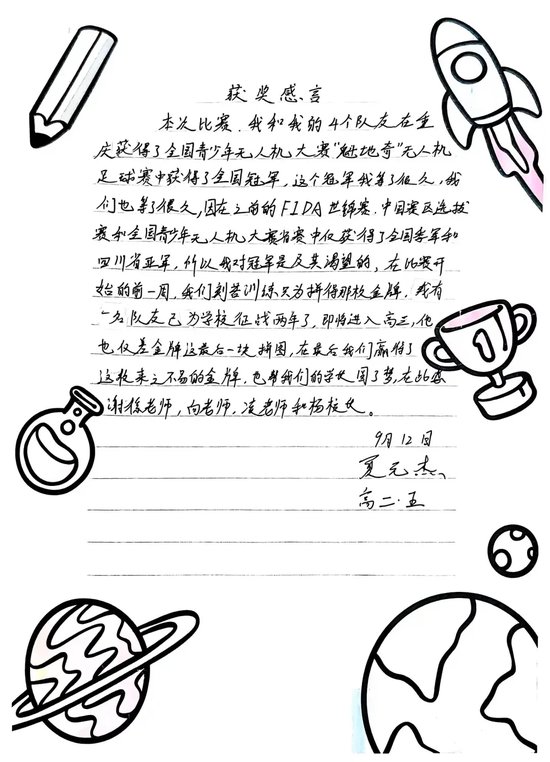 获奖感言
本次比赛，我和我的4个队友在重
庆获得了全国青少年无人机大赛"魅地奇"无人机
足球赛中获得了全国冠军，这个冠军我等了很久，我
们也等了很久，因在之前的FIDA世锦赛，中国赛区选拔
赛和全国青少年无人机大赛省赛中仅获得了全国季军和
四川省亚军，所以我对冠军是及其渴望的，在比赛开
始的前一周，我们刻苦训练只为拼得那枚金牌，我有
一名队友已为学校征战两年了，即将进入高三，他
也仅差金牌这最后一块拼图，在最后我们赢得了
这枚来之不易的金牌，也帮我们的学长圆了梦，在此感
谢徐老师，向老师，凌老师和杨校长。
9月12日
夏元杰
高二·五
1